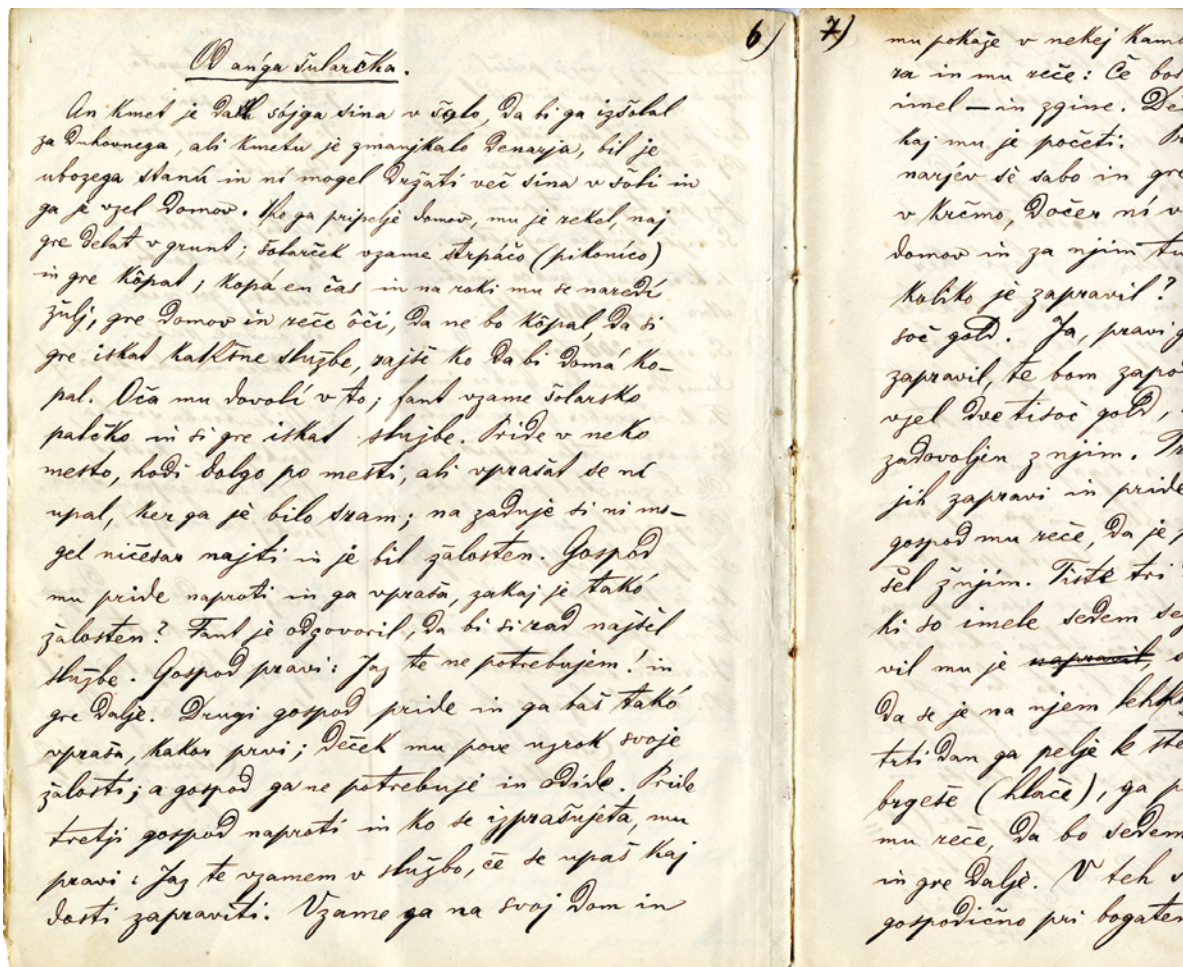 6)
Od an'ga šularčka.
An kmet je dal sójga sina v šolo, da bi ga izšolal
za duhovnega, ali kmetu je zmanjkalo denarja, bil je
ubozega stanú in ní mogel držati več sina v šoli in
ga je vzel domov. Ko ga pripelje domov, mu je rekel, naj
gre delat v grunt; šolarček vzame štrpáčo (pikonico)
in gre kôpat; kopá en čas in na roki mu se naredí
žulj, gre domov in reče ôči, da ne bo kôpal, da si
gre iskat kakšne službe, rajše ko da bi domá ko-
pal. Oča mu dovolí v to; fant vzame šolarsko
palčko in si gre iskat službe. Pride v neko
mesto, hodi dolgo po mesti, ali vprašat se ní
upal, ker ga je bilo sram; na zadnje si ni mo-
gel ničesar najti in je bil žalosten. Gospod
mu pride naproti in ga vpraša, zakaj je takó
žalosten? Fant je odgovoril, da bi si rad najšel
službe. Gospod pravi: Jaz te ne potrebujem! in
gre dalje. Drugi gospod pride in ga baš takó
vpraša, kakor prvi; deček mu pove uzrok svoje
žalosti; a gospod ga ne potrebuje in odide. Pride
tretji gospod naproti in ko se izprašujeta, mu
pravi: Jaz te vzamem v službo, če se upaš kaj
dosti zapraviti. Vzame ga na svoj dom in
7)
mu pokaže v nekej kam
ra in mu reče: Če bo
imel — in zgine. De
kaj mu je početi.
narjév sè sabo in gre
v krčmo, dočer ní v
domov in za njim tu
koliko je zapravil?
soč gold. Ja, pravi g
zapravil, te bom zapo
vzel dve tisoč gold,
zadovoljen z njim. Tr
jih zapravi in pride
gospod mu reče, da je p
šel ž njim. Tiste tri
ki so imele sedem se
vil mu je napravil, o
da se je na njem lehk
trti dan ga pelje k ste
brgeše (hlače), ga p
mu reče, da bo sedem
in gre dalje. V teh s
gospodično pri bogate